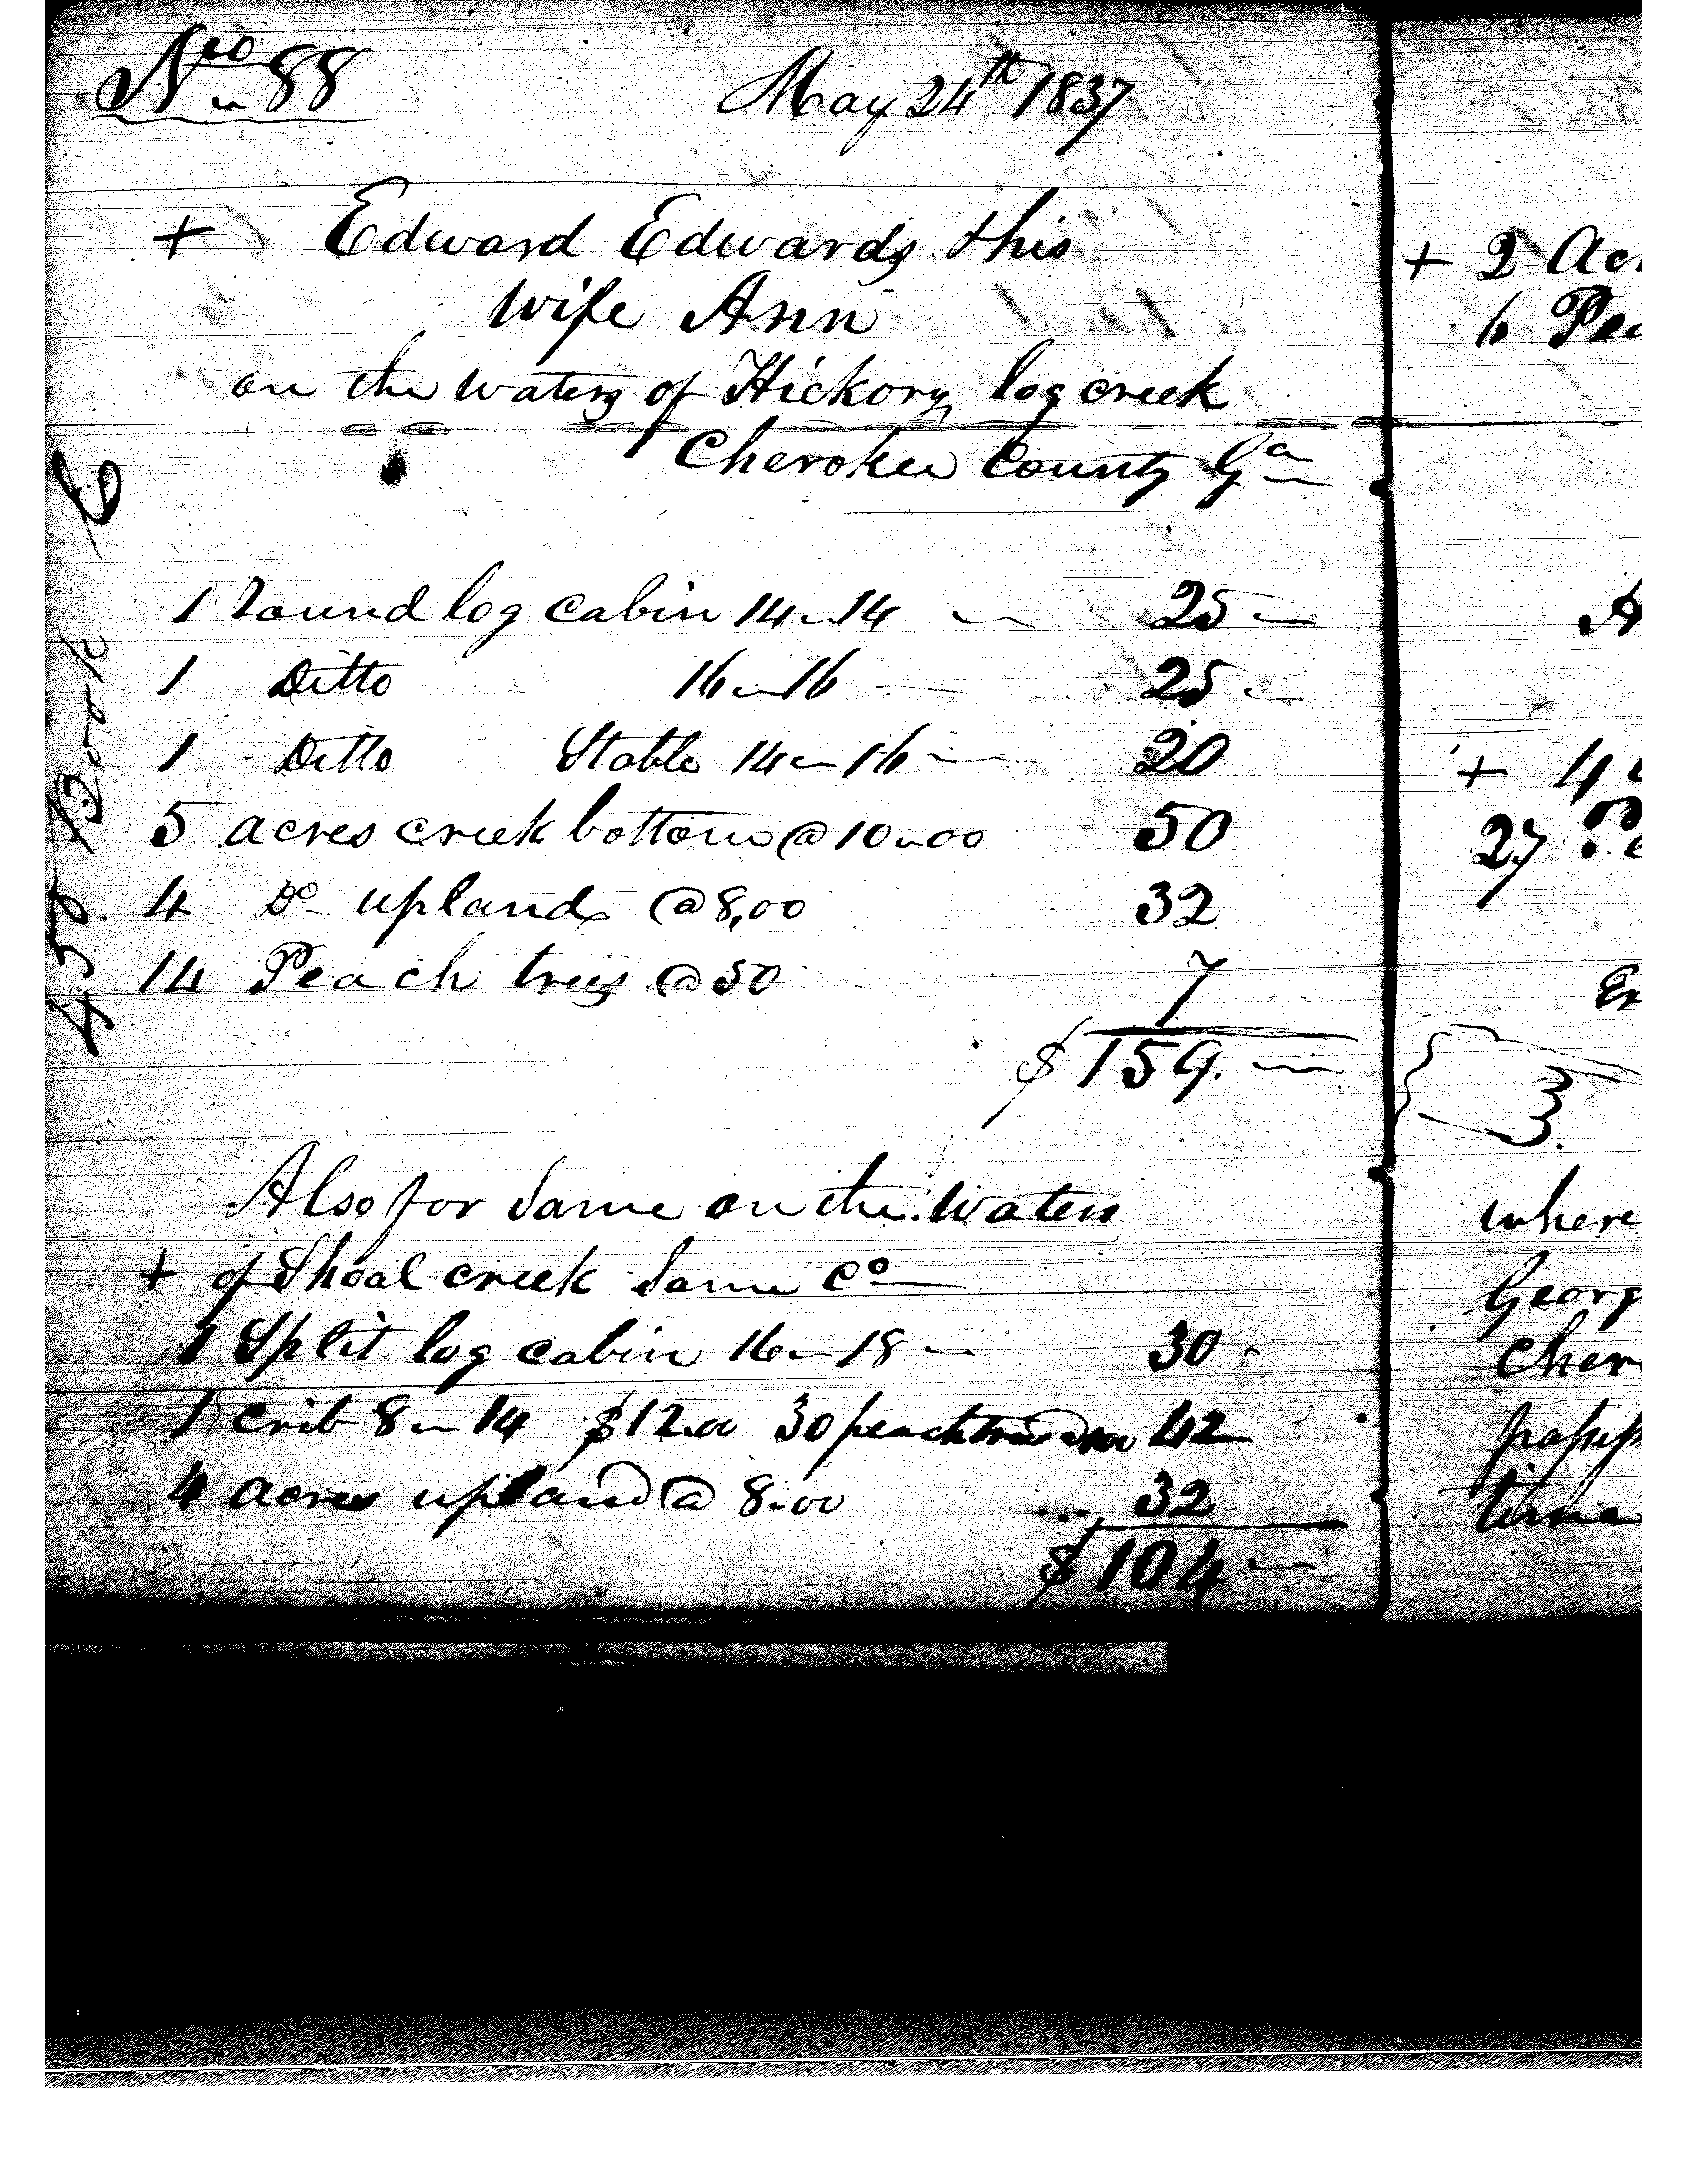 No 88
May 24th 1837
+ Edward Edwards & his
Wife Ann
on the waters of Hickory log creek
Cherokee County Ga
1 round log cabin 14 - 14 25
1 Ditto 16 - 16 25
1 Ditto Stable 14 - 16 20
5 acres creek bottom @ 10.00 50
4 Do upland @ 8,00 32
14 Peach trees @ 50 7
$159.
Also for Same on the Waters
+ of Shoal creek Same Co
1 Split log cabin 16 - 18 30
1 crib 8 - 14 $12.00 30 peach trees 42
4 acres upland @ 8.00 ... 32
$104
450 Book E
+ 2 Acr
6 Pea
A
+ 4
27 Pe
Ex
where
Georg
Cher
possess
time